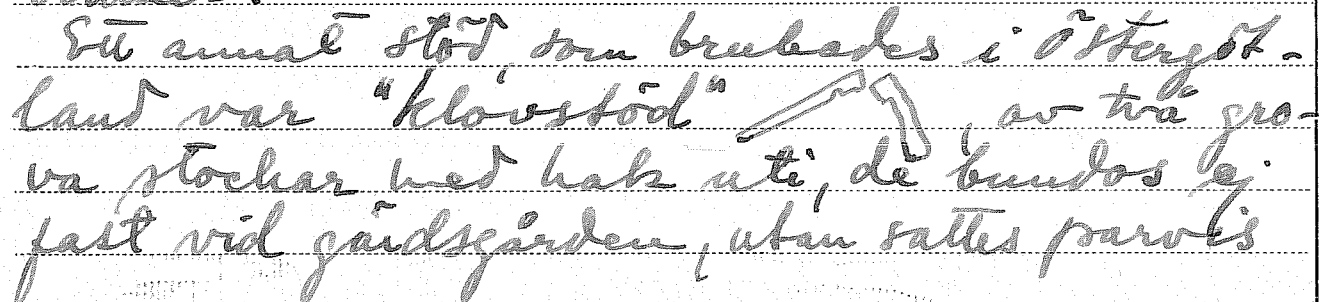 Ett annat stöd, som brukades i Östergöt-
land var "klovstöd" , av två gro-
va stockar med hak uti, de bundos ej
fast vid gärdsgården, utan sattes parvis